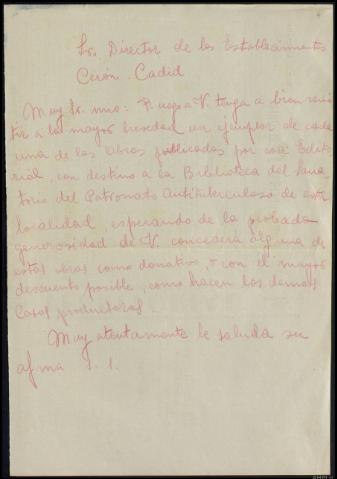 Sr. Director de los Establecimientos
Cerón. Cadid
Muy Sr. mio: Ruego a V. tenga a bien remi
tir a la mayor brevedad un ejemplar de cada
una de las obras publicadas por esa Edit
rial, con destino a la Biblioteca del Sana
torio del Patronato Antituberculoso de esta
localidad, esperando de la probada
generosidad de V. concederá alguna de
estas obras como donativo, o con el mayor
descuento posible, como hacen las demas
Casas productoras.
Muy atentamente le saluda su
afma S. S.